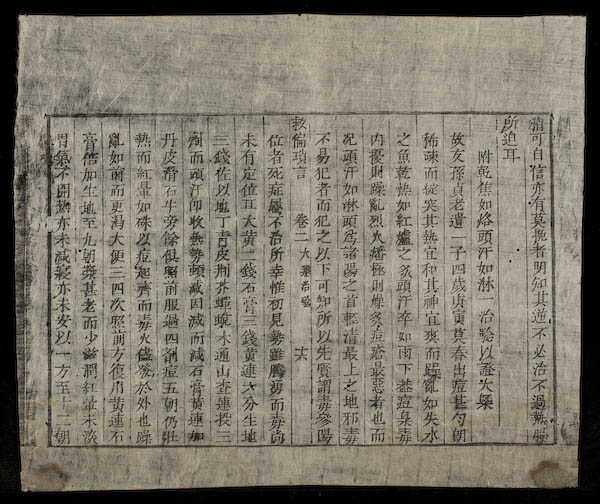 稍可自信亦有莫挽者明知其逆不必治不過熱腸
所迫耳
附乾焦如烙頭汗如淋一治驗以證火槩
故友孫貞老遺一子四歲庚寅莫春出痘甚勻朗
稀疎而綻突其熱宜和其神宜爽而躁亂如失水
之魚乾熱如紅爐之炙頭汗卒如雨下葢痘梟毒
内擾則躁亂烈火燔極則燥炙痘瘄最惡者也而
况頭汗如淋頭爲諸陽之首輕清最上之地邪毒
不易犯者而犯之以下可知所以先賢謂毒參陽
救偏瑣言 卷二 大 治驗 十六
位者死症屬不治所幸惟初見勢雖騰湧而毒尚
未有定位耳大黄二錢石膏三錢黄連六分生地
三錢佐以地丁青皮荆芥蟬蛻木通山查連投三
劑而頭汗即收熱勢頓减因减而减石膏黄連加
丹皮滑石牛旁餘俱照前服過四劑痘五朝仍壮
熱而紅暈如硃以症起齊而毒火儘發於外也躁
亂如前而更瀉大便三四次照前方復用黄連石
膏倍加生地至九朝漿甚老而少滋潤紅暈未淡
胃氣不開熱亦未减寢亦未安以一方至十二朝